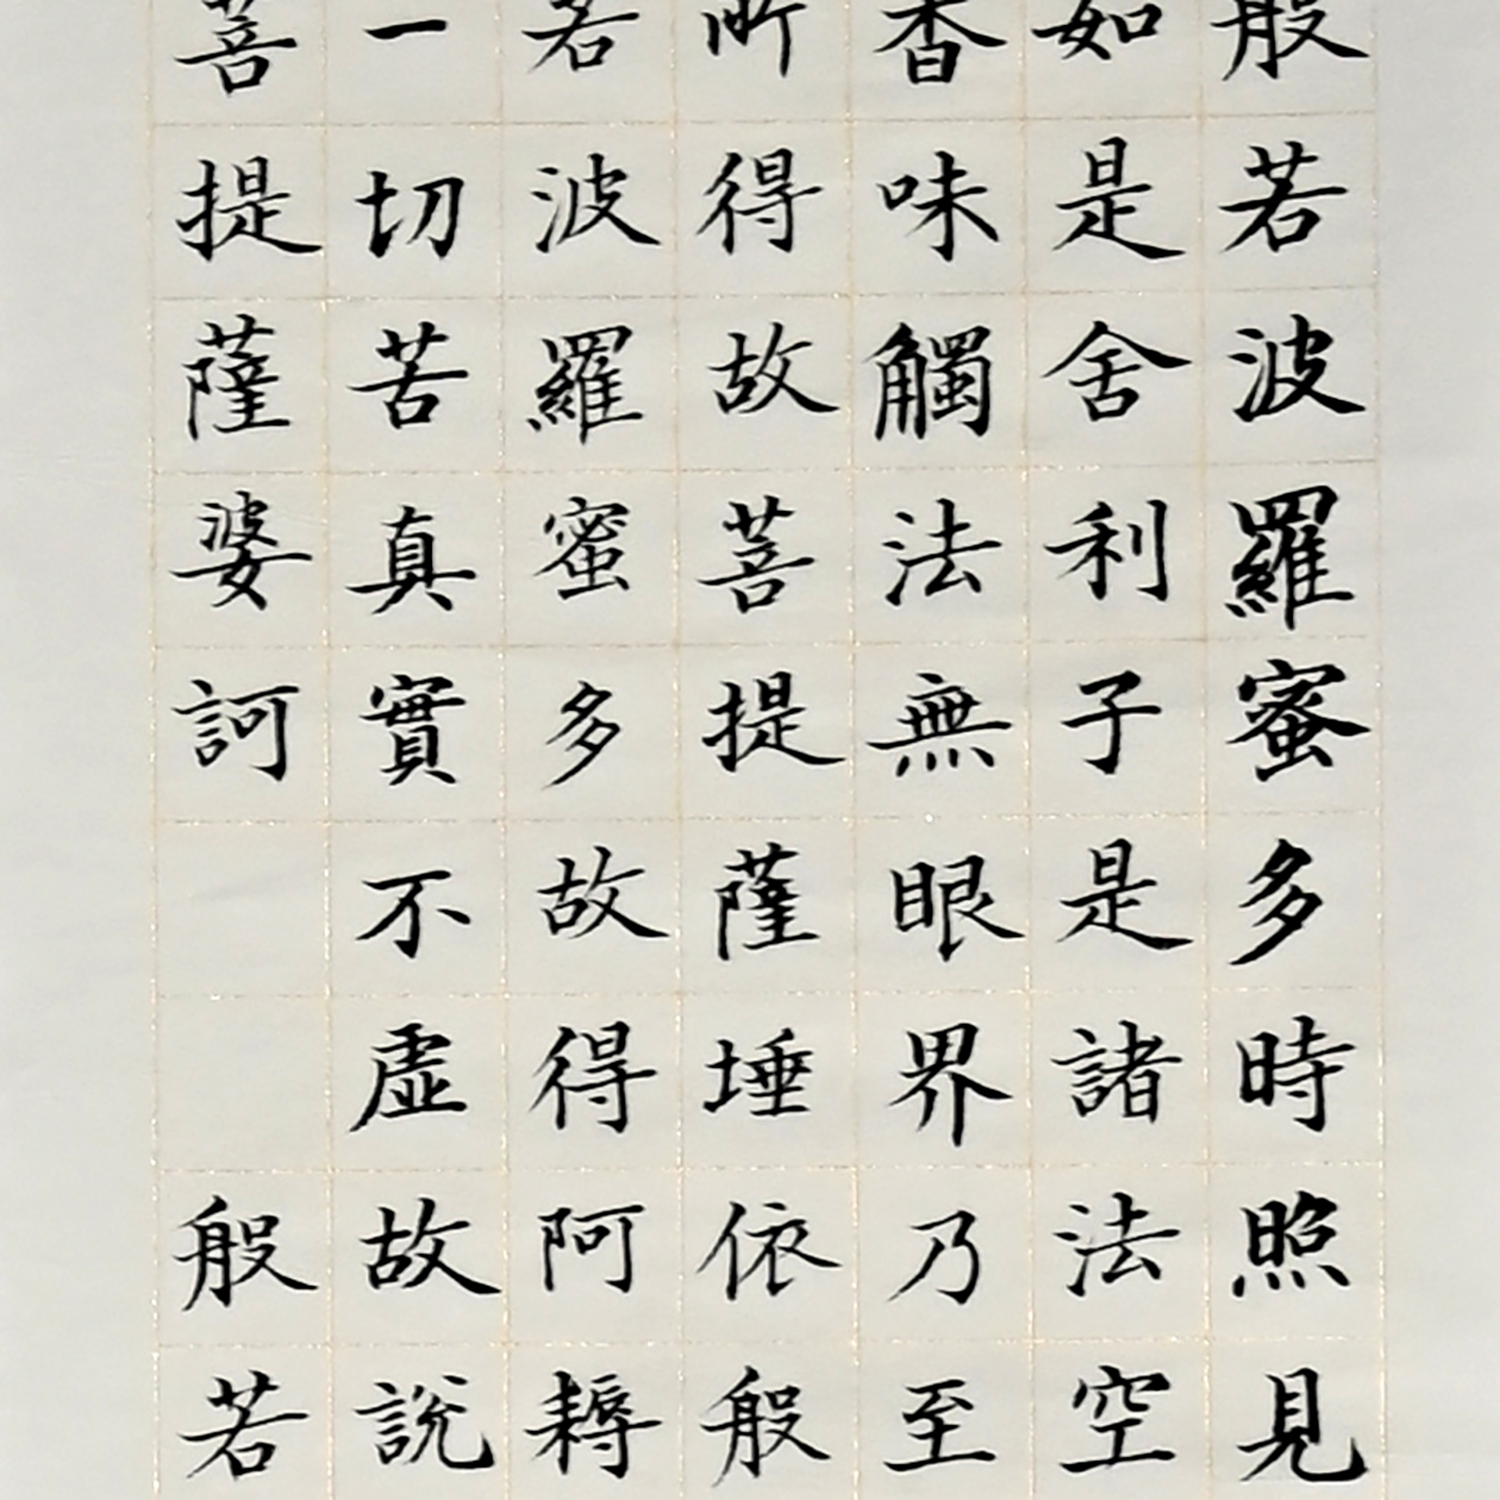 般若波羅蜜多時照見
如是舍利子是諸法空
香味觸法無眼界乃至
所得故菩提薩埵依般
若波羅蜜多故得阿耨
一切苦真實不虛故說
菩提薩婆訶 般若